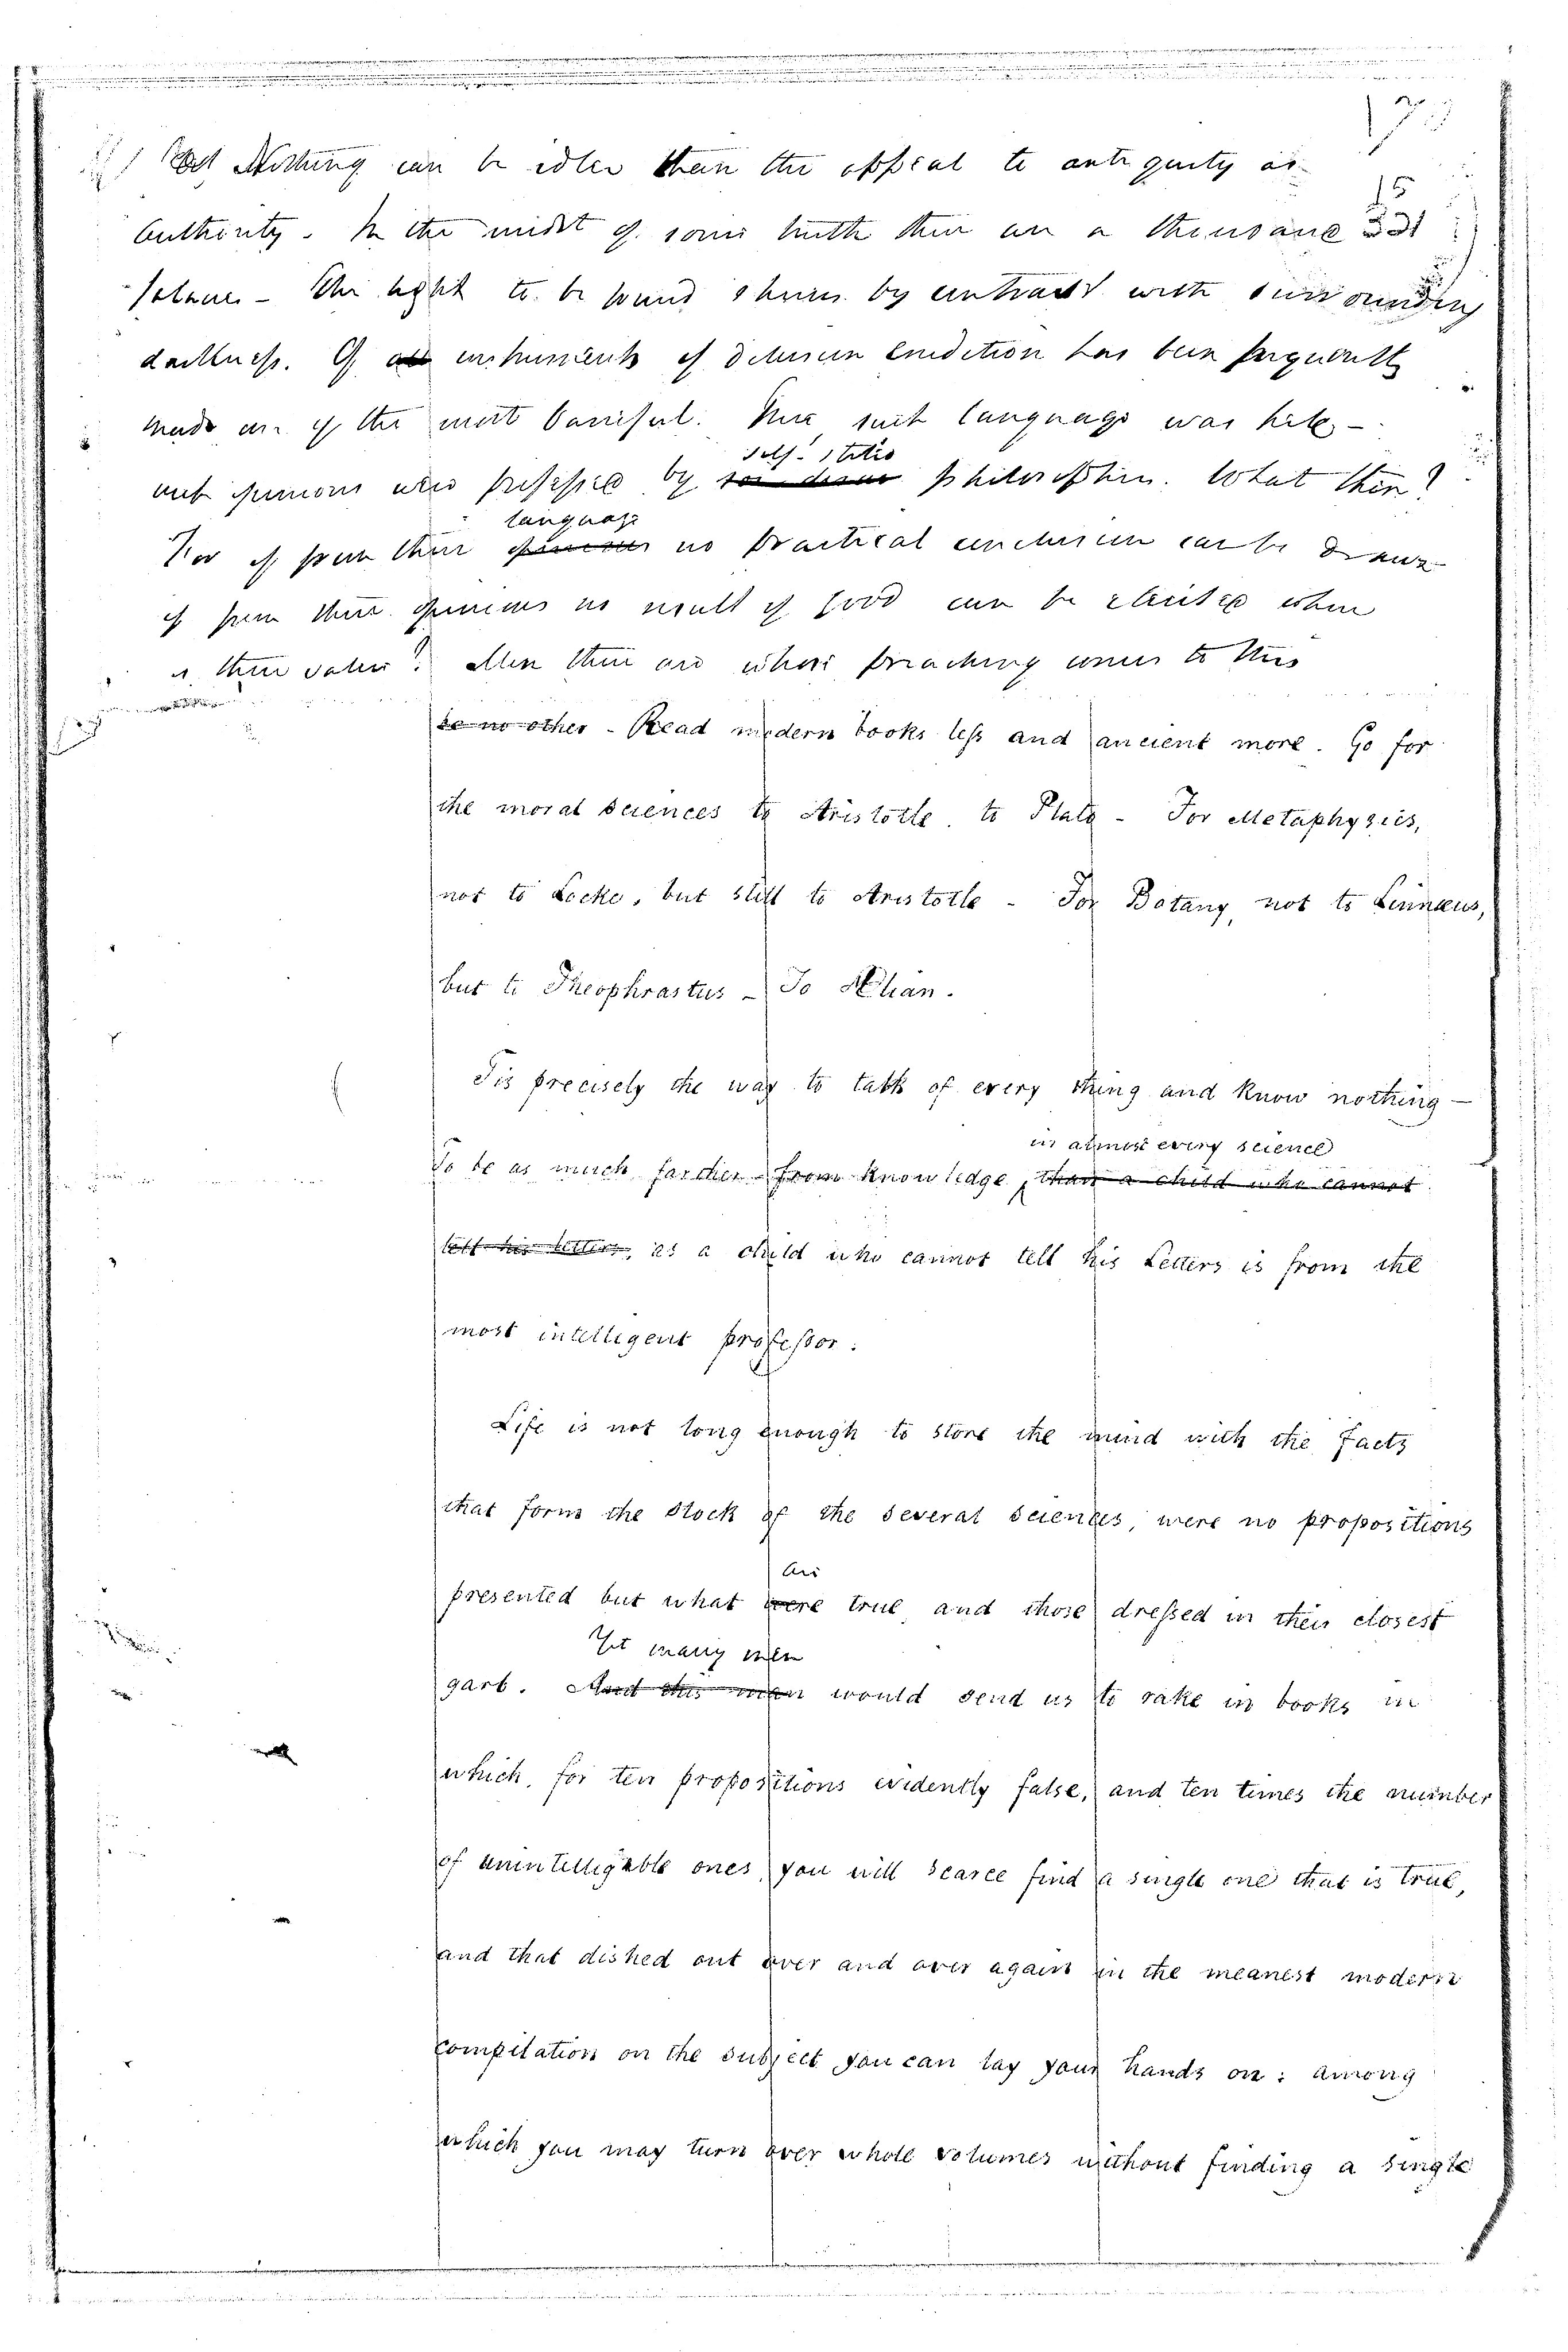 173
Nothing can be idler than the appeal to antiquity as
15
authority. In the midst of some truth there are a thousand
331
The light to be found shines by contrast with surrounding
darkness. Of all instruments of delusion erudition has been frequently
made one of the most baneful. such language was held -
such opinions were professed by soi-disant philosophers. What then?
self-stiled
For if from their opinions no practical conclusion can be drawn
language
if from their opinions no result of good can be elicited where
is their value? All then are where preaching comes to this
be no other - Read modern books less and ancient more. Go for
the moral sciences to Aristotle, to Plato - For Metaphysics,
not to Locke, but still to Aristotle - For Botany, not to Linnæus,
but to Theophrastus - To Ælian.
Tis precisely the way to talk of every thing and know nothing -
in almost every science
To be as much farther from knowledge, than a child who cannot
tell his letters, as a child who cannot tell his Letters is from the
most intelligent professor.
Life is not long enough to store the mind with the facts
that form the stock of the several sciences, were no propositions
are
presented but what were true and those dressed in their closest
Yet many men
garb. And this man would send us to rake in books in
which, for ten propositions evidently false, and ten times the number
of unintelligable ones, you will scarce find a single one that is true,
and that dished out over and over again in the meanest modern
compilation on the subject you can lay your hands on: among
which you may turn over whole volumes without finding a single